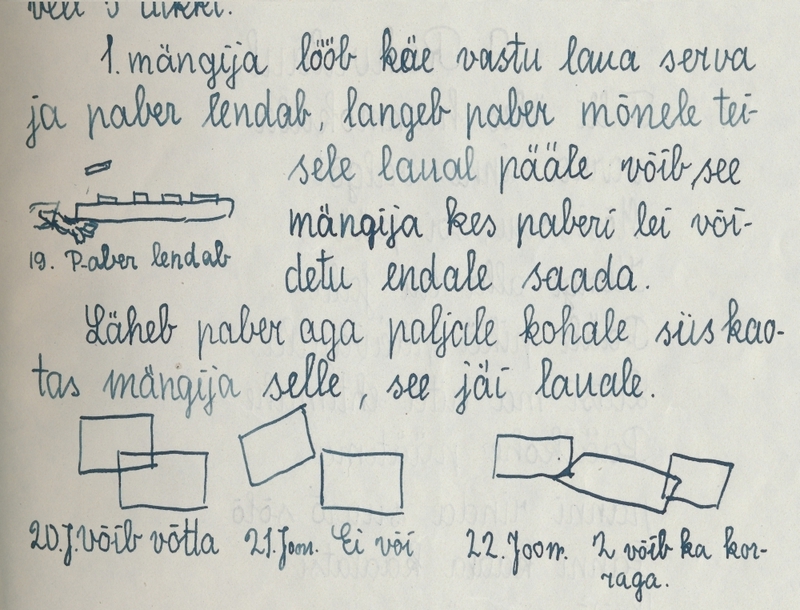 1. mängija lööb käe vastu laua serva
ja paber lendab, langeb paber mõnele tei-
sele laual pääle võib, see
mängija kes paberi lei või-
detu endale saada.
19. Paber lendab
Läheb paber aga paljale kohale siis kao-
tas mängija selle, see jäi lauale.
20. J. võib võtta
21. Joon. Ei või
22. Joon. 2 võib ka kor-
raga.